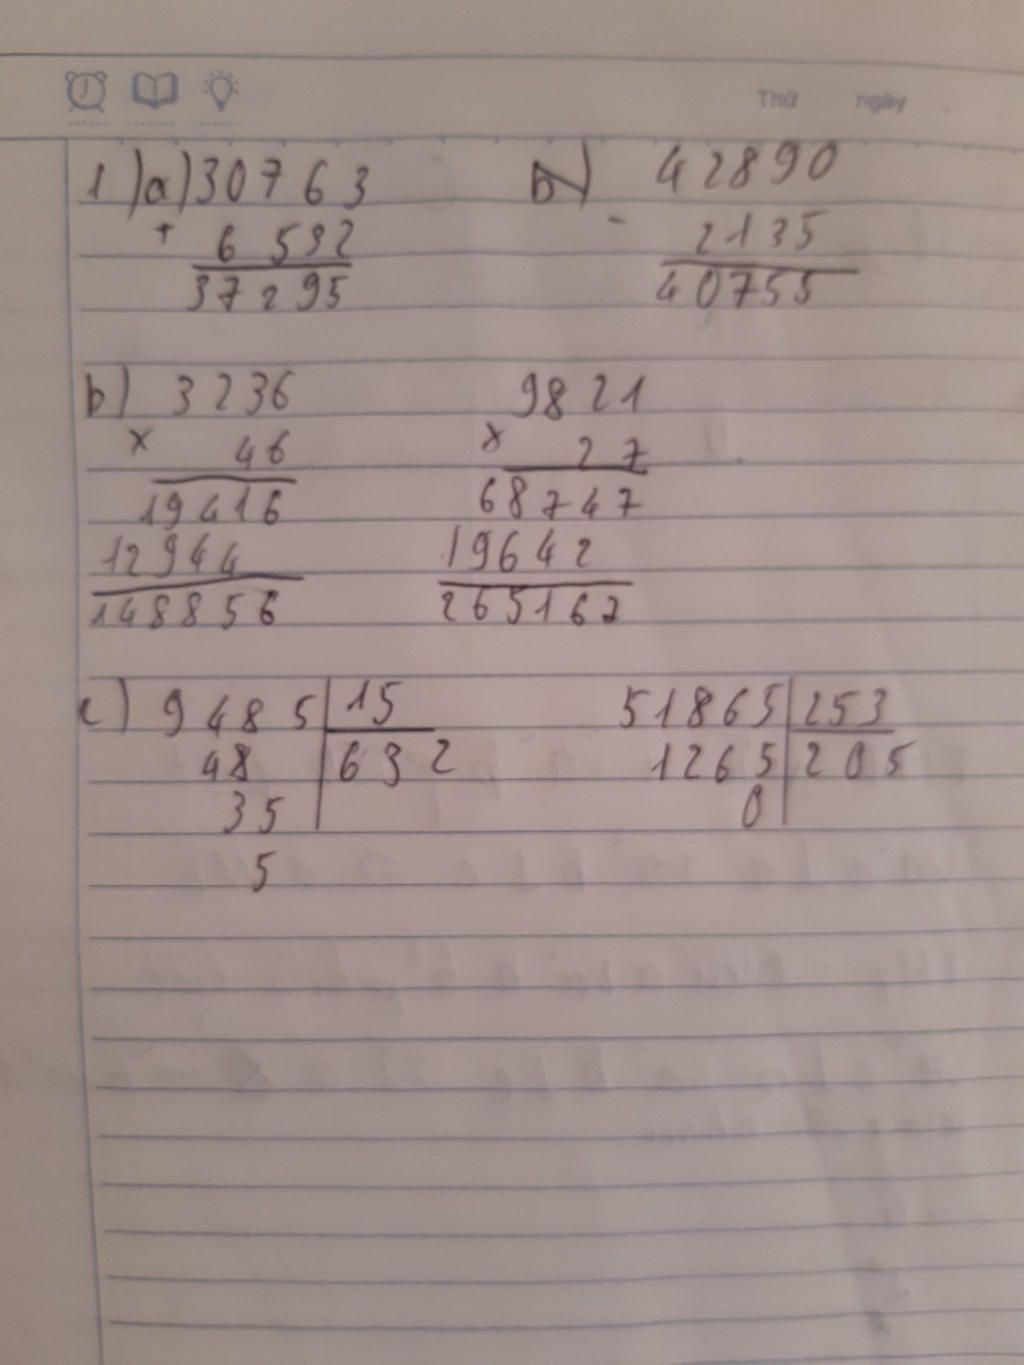 Thứ ngày
1) a) 30763 b) 42890
+ 6 532 - 2135
37295 40755
b) 3236 9821
x 46 x 27
19416 68747
12944 19642
148856 265167
c) 9485 15 51865 253
48 632 1265 205
35 0
5